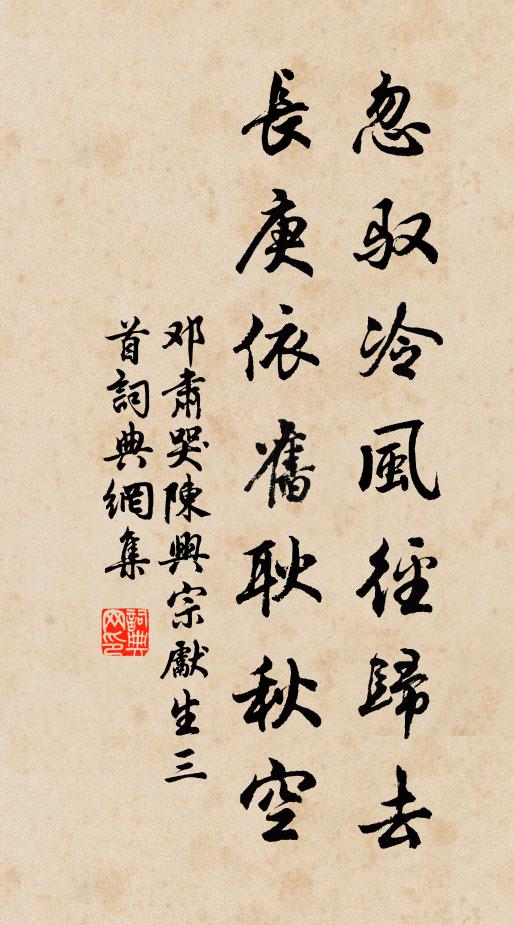 忽驭冷風徑歸去
長庚依舊耿秋空
邓肅哭陳興宗獻生三
首詞典網集
詞典
网印